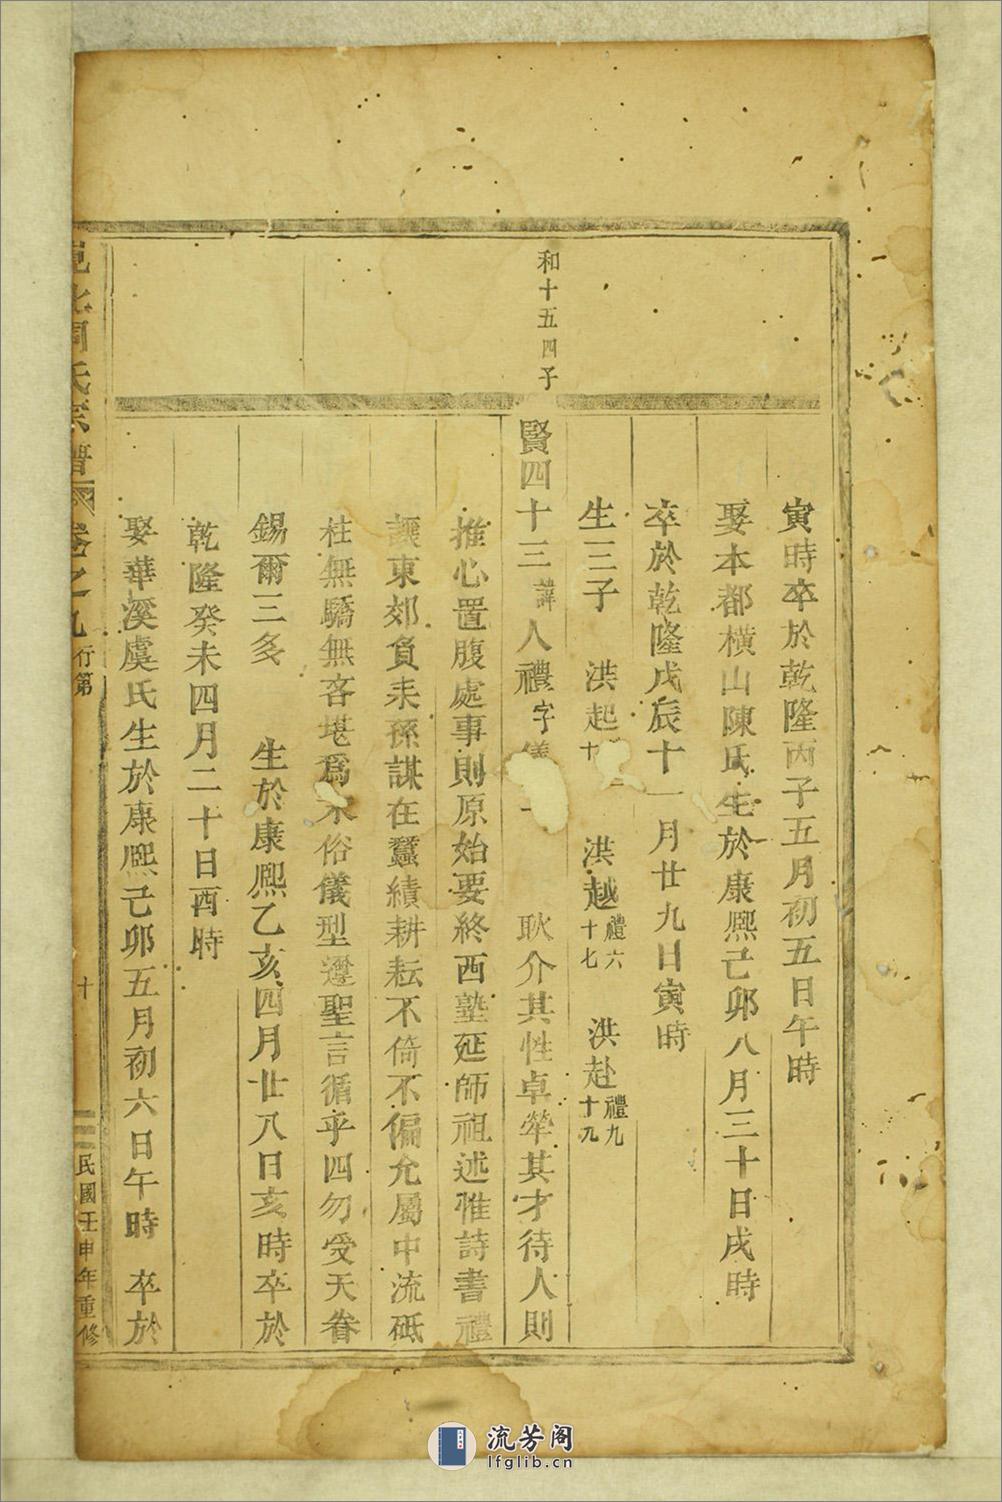 寅時卒於乾隆丙子五月初五日午時
娶本都橫山陳氏生於康熙己卯八月三十日戌時
卒於乾隆戊辰十一月廿九日寅時
生三子 洪起 十 洪越禮六十七 洪赴禮九十九
和十五四子
賢四十三諱人禮字儀 耿介其性卓犖其才待人則
推心置腹處事則原始要終西塾延師祖述惟詩書禮
讓東郊負耒孫謀在蠶績耕耘不倚不偏允屬中流砥
柱無驕無吝堪爲末俗儀型遵聖言循乎四勿受天眷
錫爾三多 生於康熙乙亥四月廿八日亥時卒於
乾隆癸未四月二十日酉時
娶華溪虞氏生於康熙己卯五月初六日午時 卒於
氏宗譜 卷之九 行第 十 民國壬申年重修
流芳阁
lfglib.cn